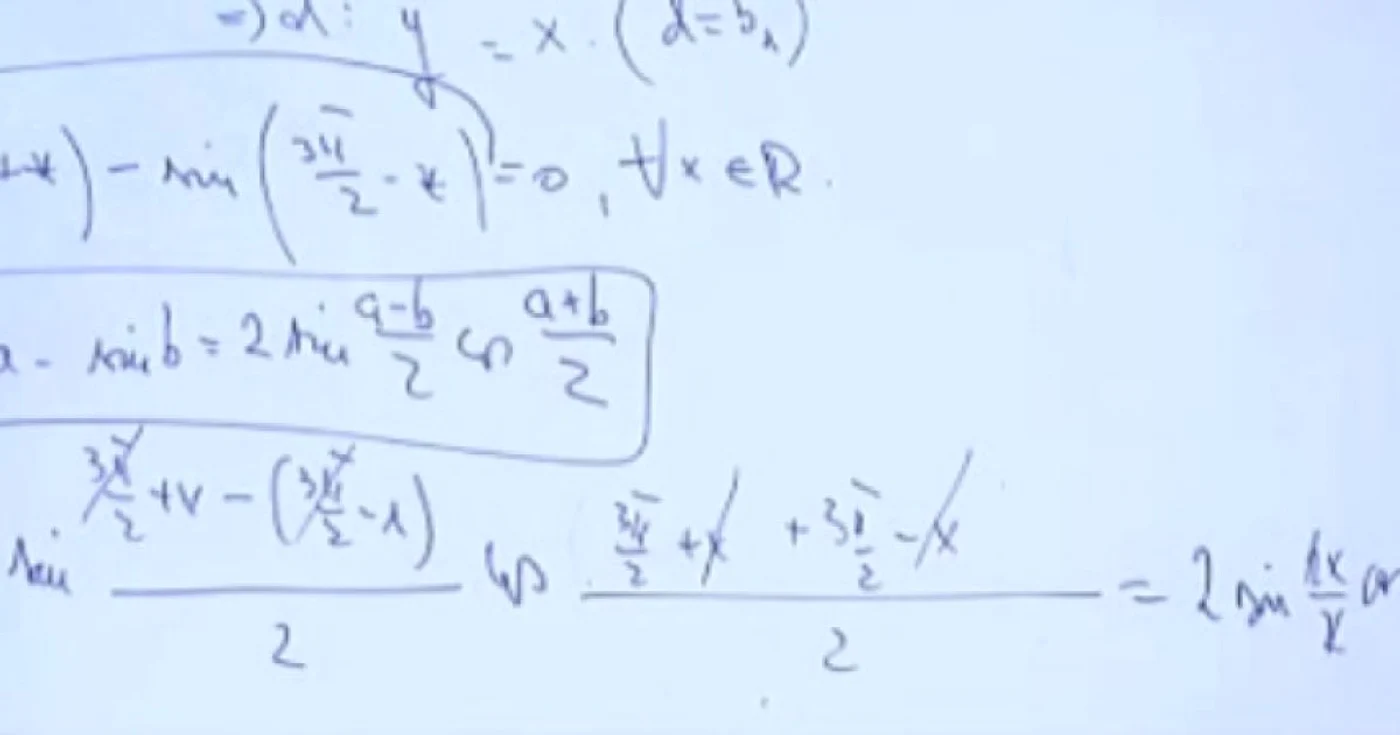 => d: y = x. (d = b₁)
+x) - sin(3π/2 - x) = 0, ∀x ∈ R.
a - sin b = 2 sin (a-b)/2 cos (a+b)/2
sin (3π/2 + x - (3π/2 - x))/2 cos (3π/2 + x + 3π/2 - x)/2 = 2 sin 2x/2 co